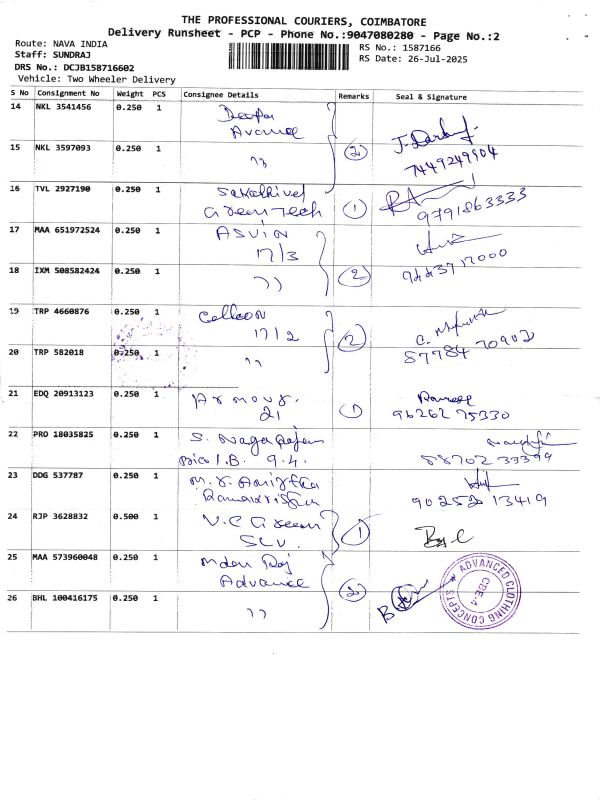 THE PROFESSIONAL COURIERS, COIMBATORE
Delivery Runsheet - PCP - Phone No.:9047080280 - Page No.:2
Route: NAVA INDIA
Staff: SUNDRAJ
DRS No.: DCJB158716602
Vehicle: Two Wheeler Delivery
RS No.: 1587166
RS Date: 26-Jul-2025
S No Consignment No Weight PCS Consignee Details Remarks Seal & Signature
14 NKL 3541456 0.250 1 Deepa
Avenue
15 NKL 3597093 0.250 1 " 2
7449249904
16 TVL 2927190 0.250 1 Sakthivel
Green Tech 1 9791863333
17 MAA 651972524 0.250 1 ASVIN
17/3
18 IXM 508582424 0.250 1 " 2 9443717000
19 TRP 4660876 0.250 1
17/2 2
20 TRP 582018 0.250 1 " 87784 70902
21 EDQ 20913123 0.250 1 Armour.
21 1 96262 75330
22 PRO 18035825 0.250 1 S. Nagarajan
9.4. 88702 33399
23 DDG 537787 0.250 1
90252 13419
24 RJP 3628832 0.500 1 V.C Green
1
25 MAA 573960048 0.250 1
Advance 2
26 BHL 100416175 0.250 1 "
ADVANCED CLOTHING CONCEPTS
CBE-4